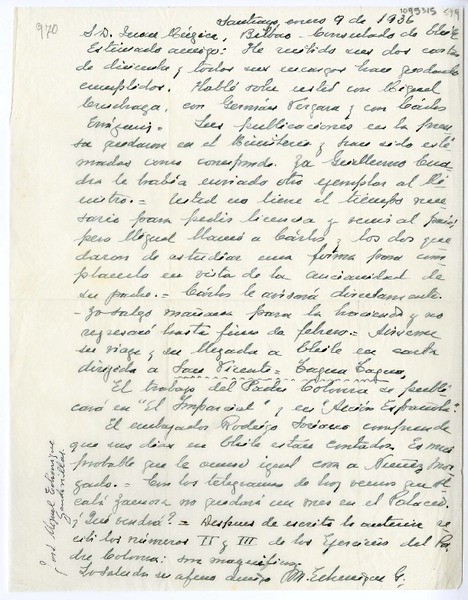 970
1099315
Santiago, enero 9 de 1936
S. D. Juan Múgica, Bilbao - Consulado de Chile
Estimado amigo: He recibido sus dos cartas
de diciembre y todos sus encargos han quedado
cumplidos. Hablé sobre usted con Miguel
Cruchaga, con Germán Vergara y con Carlos
Errázuriz. Las publicaciones en la pren-
sa quedaron en el Ministerio y han sido esti-
madas como corresponde. Ya Guillermo
le había enviado otro ejemplar al Mi-
nistro. = Usted no tiene el tiempo nece-
sario para pedir licencia y venir al país,
pero Miguel llamó a Carlos y los dos que-
daron de estudiar una forma para com-
placerlo en vista de la ancianidad de
su padre. = Carlos le avisará directamente.
- Yo salgo mañana para la hacienda y no
regresaré hasta fines de febrero. = Avíseme
su viaje y su llegada a Chile en carta
dirigida a San Vicente = Tagua Tagua.
El trabajo del Padre Coloma se publi-
cará en "El Imparcial" y en "Acción Española".
El embajador Rodrigo Soriano comprende
que sus días en Chile están contados. Es muy
probable que le ocurra igual con a Núñez Mor-
gado. = Con los telegramas de hoy vemos que Al-
calá Zamora no quedará un mes en el Palacio.
¿Qué vendrá? = Después de escrita la anterior re-
cibí los números II y III de los Ejercicios del Pa-
dre Coloma: son magníficos.
Lo saluda su afmo amigo M. Echenique G.
José Miguel Echenique
Gandarillas.